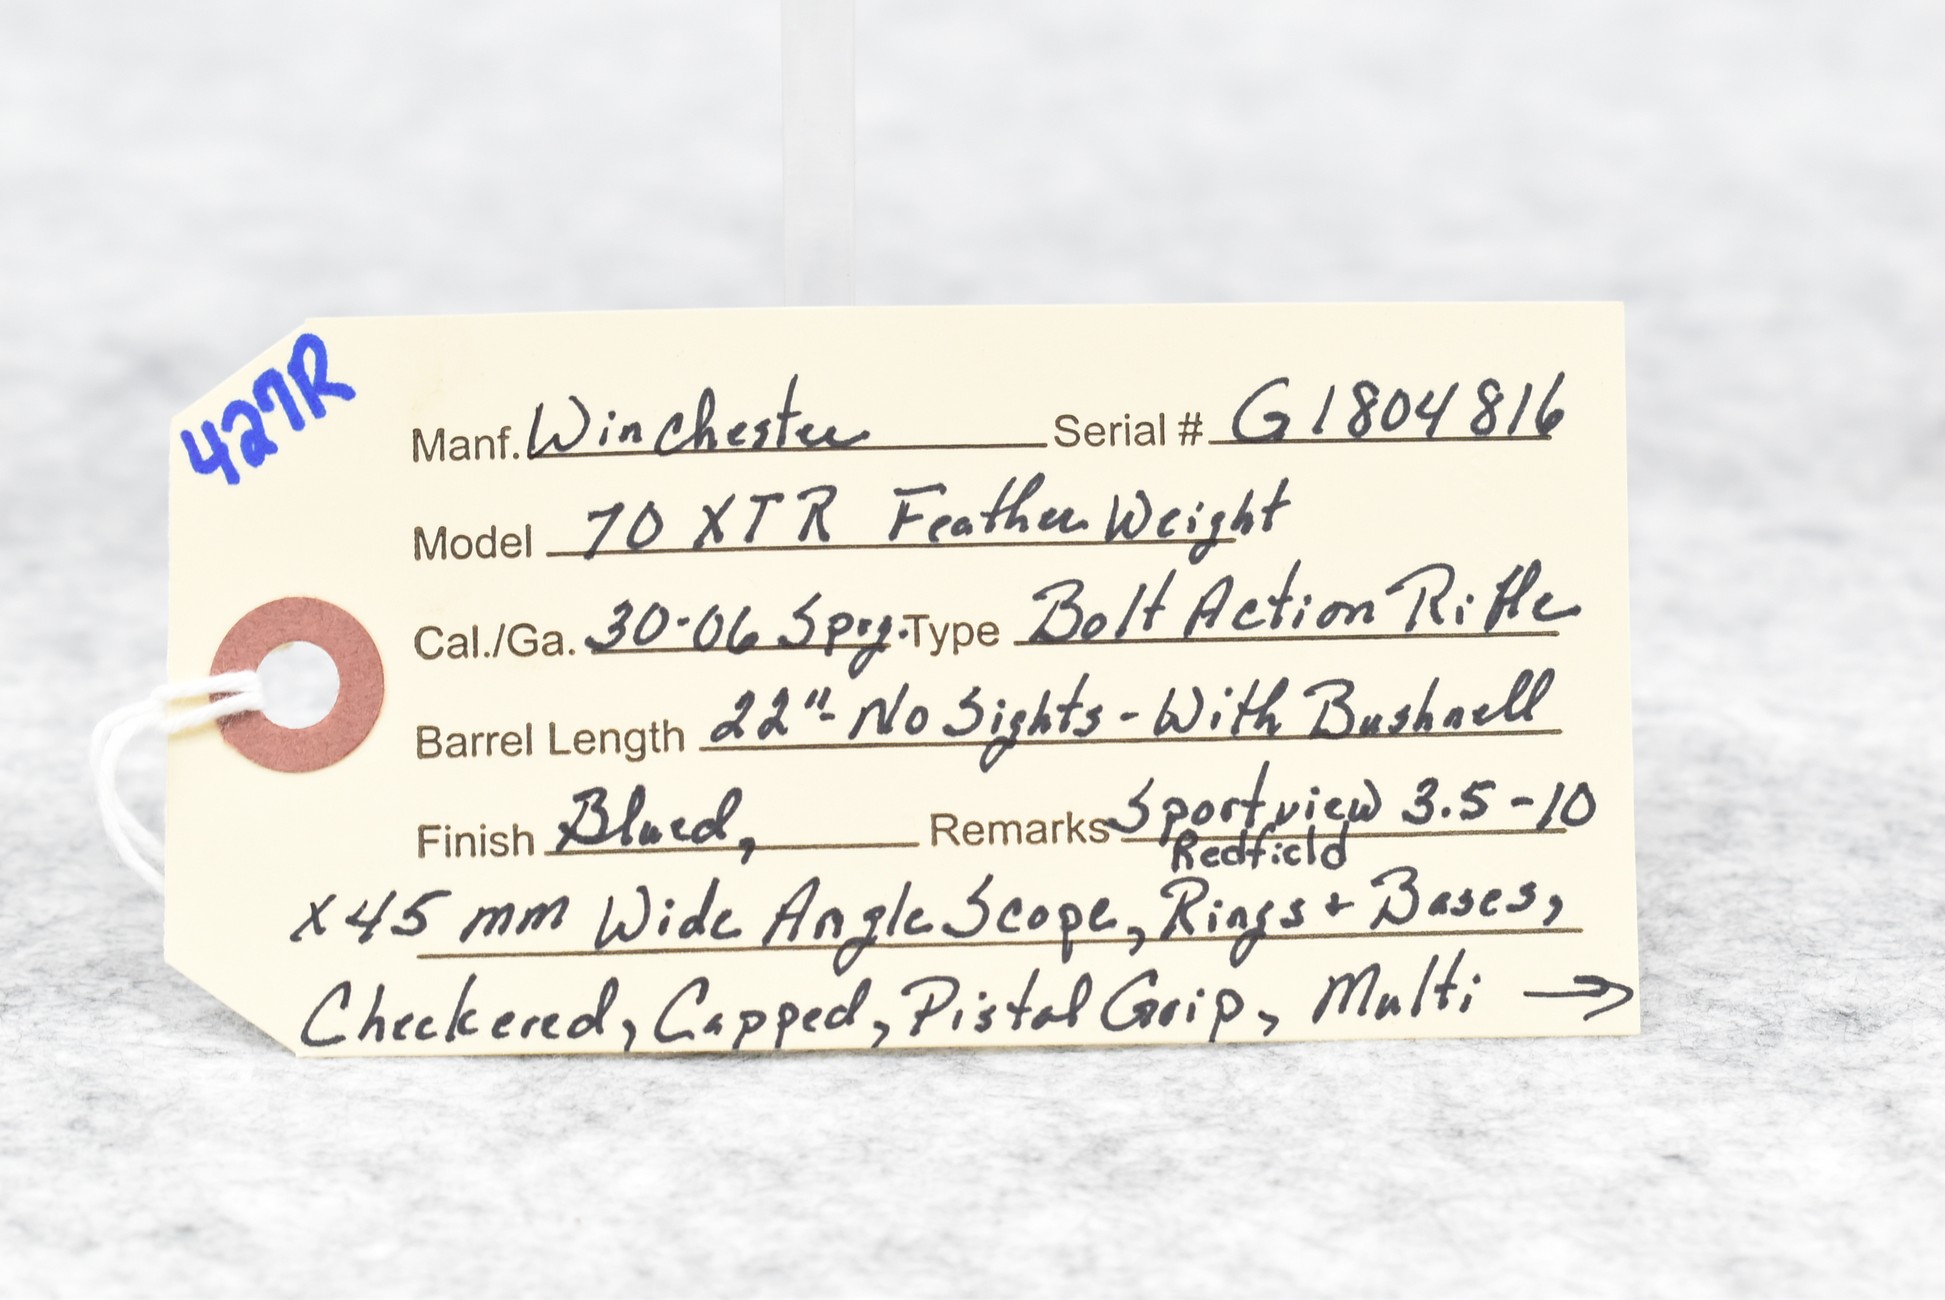 427R
Manf. Winchester Serial # G1804816
Model 70 XTR Feather Weight
Cal./Ga. 30-06 Sprg. Type Bolt Action Rifle
Barrel Length 22" - No Sights - With Bushnell
Finish Blued, Remarks Sportview 3.5-10
Redfield
x45 mm Wide Angle Scope, Rings + Bases,
Checkered, Capped, Pistol Grip, Multi →